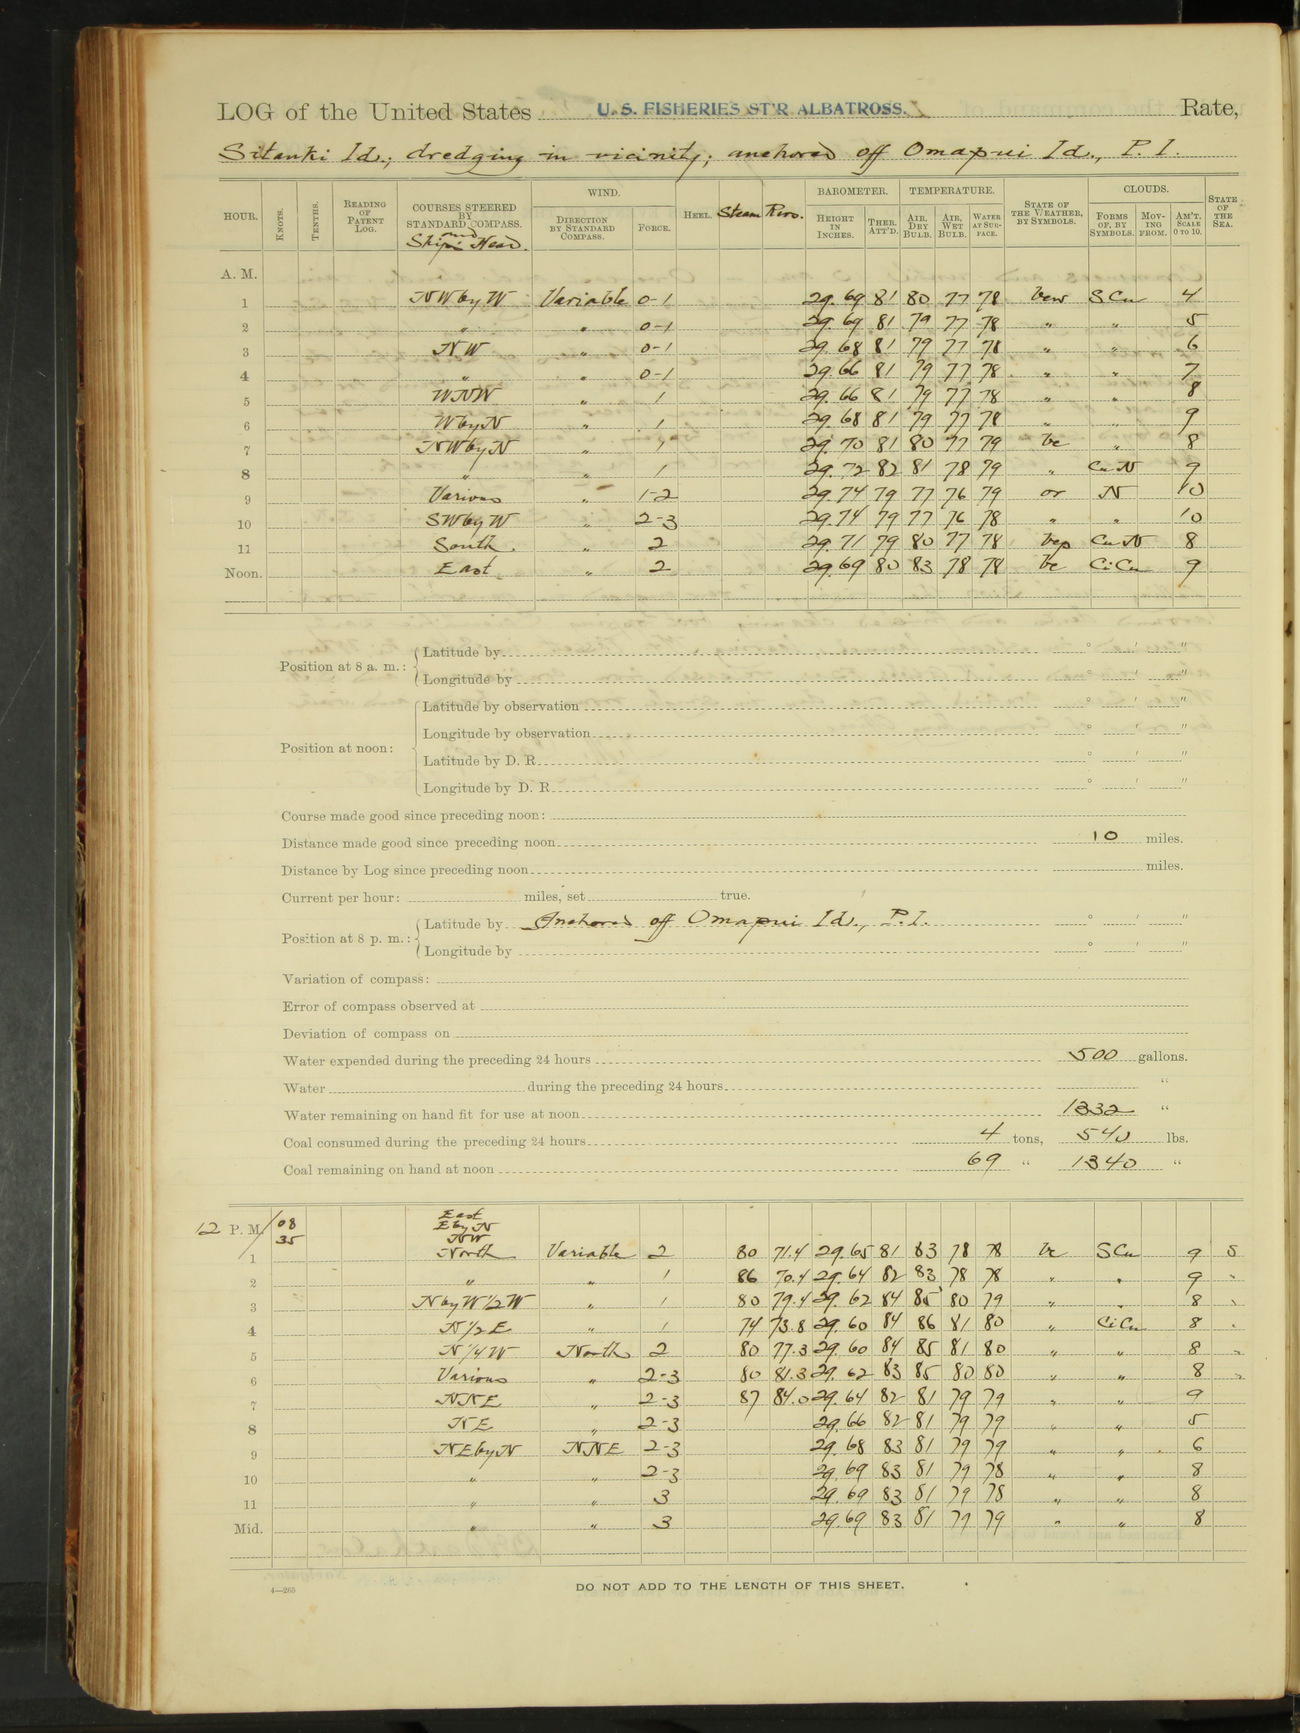 LOG of the United States U. S. FISHERIES ST'R ALBATROSS. Rate,
Sitanki Id.; dredging in vicinity; anchored off Omapui Id., P. I.
HOUR. KNOTS. TENTHS. READING OF PATENT LOG. COURSES STEERED BY STANDARD COMPASS. and Ship's Head. WIND. DIRECTION BY STANDARD COMPASS. FORCE. HEEL. Steam Revs. BAROMETER. HEIGHT IN INCHES. THER. ATT'D. TEMPERATURE. AIR, DRY BULB. AIR, WET BULB. WATER AT SURFACE. STATE OF THE WEATHER, BY SYMBOLS. CLOUDS. FORMS OF, BY SYMBOLS. MOVING FROM. AM'T. SCALE 0 TO 10. STATE OF THE SEA.
A. M.
1 NW by W Variable 0-1 29.69 81 80 77 78 S Cu 4
2 " " 0-1 29.69 81 79 77 78 " " 5
3 NW " 0-1 29.68 81 79 77 78 " " 6
4 " " 0-1 29.66 81 79 77 78 " " 7
5 WNW " 1 29.66 81 79 77 78 " " 8
6 W by N " 1 29.68 81 79 77 78 " " 9
7 NW by N " 1 29.70 81 80 77 79 bc " 8
8 " " 1 29.72 82 81 78 79 " Cu N 9
9 Various " 1-2 29.74 79 77 76 79 or N 10
10 SW by W " 2-3 29.74 79 77 76 78 " " 10
11 South " 2 29.71 79 80 77 78 bcp Cu N 8
Noon. East " 2 29.69 80 83 78 78 bc Ci Cu 9
Position at 8 a. m.: Latitude by ° ' "
Longitude by ° ' "
Position at noon: Latitude by observation ° ' "
Longitude by observation ° ' "
Latitude by D. R. ° ' "
Longitude by D. R. ° ' "
Course made good since preceding noon:
Distance made good since preceding noon 10 miles.
Distance by Log since preceding noon miles.
Current per hour: miles, set true.
Position at 8 p. m.: Latitude by Anchored off Omapui Id., P. I. ° ' "
Longitude by ° ' "
Variation of compass:
Error of compass observed at
Deviation of compass on
Water expended during the preceding 24 hours 500 gallons.
Water during the preceding 24 hours "
Water remaining on hand fit for use at noon 1332 "
Coal consumed during the preceding 24 hours 4 tons, 540 lbs.
Coal remaining on hand at noon 69 " 1340 "
12 P. M. 08 35 East
E by N
NW
1 North Variable 2 80 71.4 29.65 81 83 78 78 bc S Cu 9 S
2 " " 1 86 70.4 29.64 82 83 78 78 " " 9 "
3 N by W 1/2 W " 1 80 79.4 29.62 84 85 80 79 " " 8 "
4 N 1/2 E " 1 74 73.8 29.60 84 86 81 80 " Ci Cu 8 "
5 N 1/4 W North 2 80 77.3 29.60 84 85 81 80 " " 8 "
6 Various " 2-3 80 81.3 29.62 83 85 80 80 " " 8 "
7 NNE " 2-3 87 84.0 29.64 82 81 79 79 " " 9
8 NE " 2-3 29.66 82 81 79 79 " " 5
9 NE by N NNE 2-3 29.68 83 81 79 79 " " 6
10 " " 2-3 29.69 83 81 79 78 " " 8
11 " " 3 29.69 83 81 79 78 " " 8
Mid. " " 3 29.69 83 81 79 79 " " 8
4—265
DO NOT ADD TO THE LENGTH OF THIS SHEET.